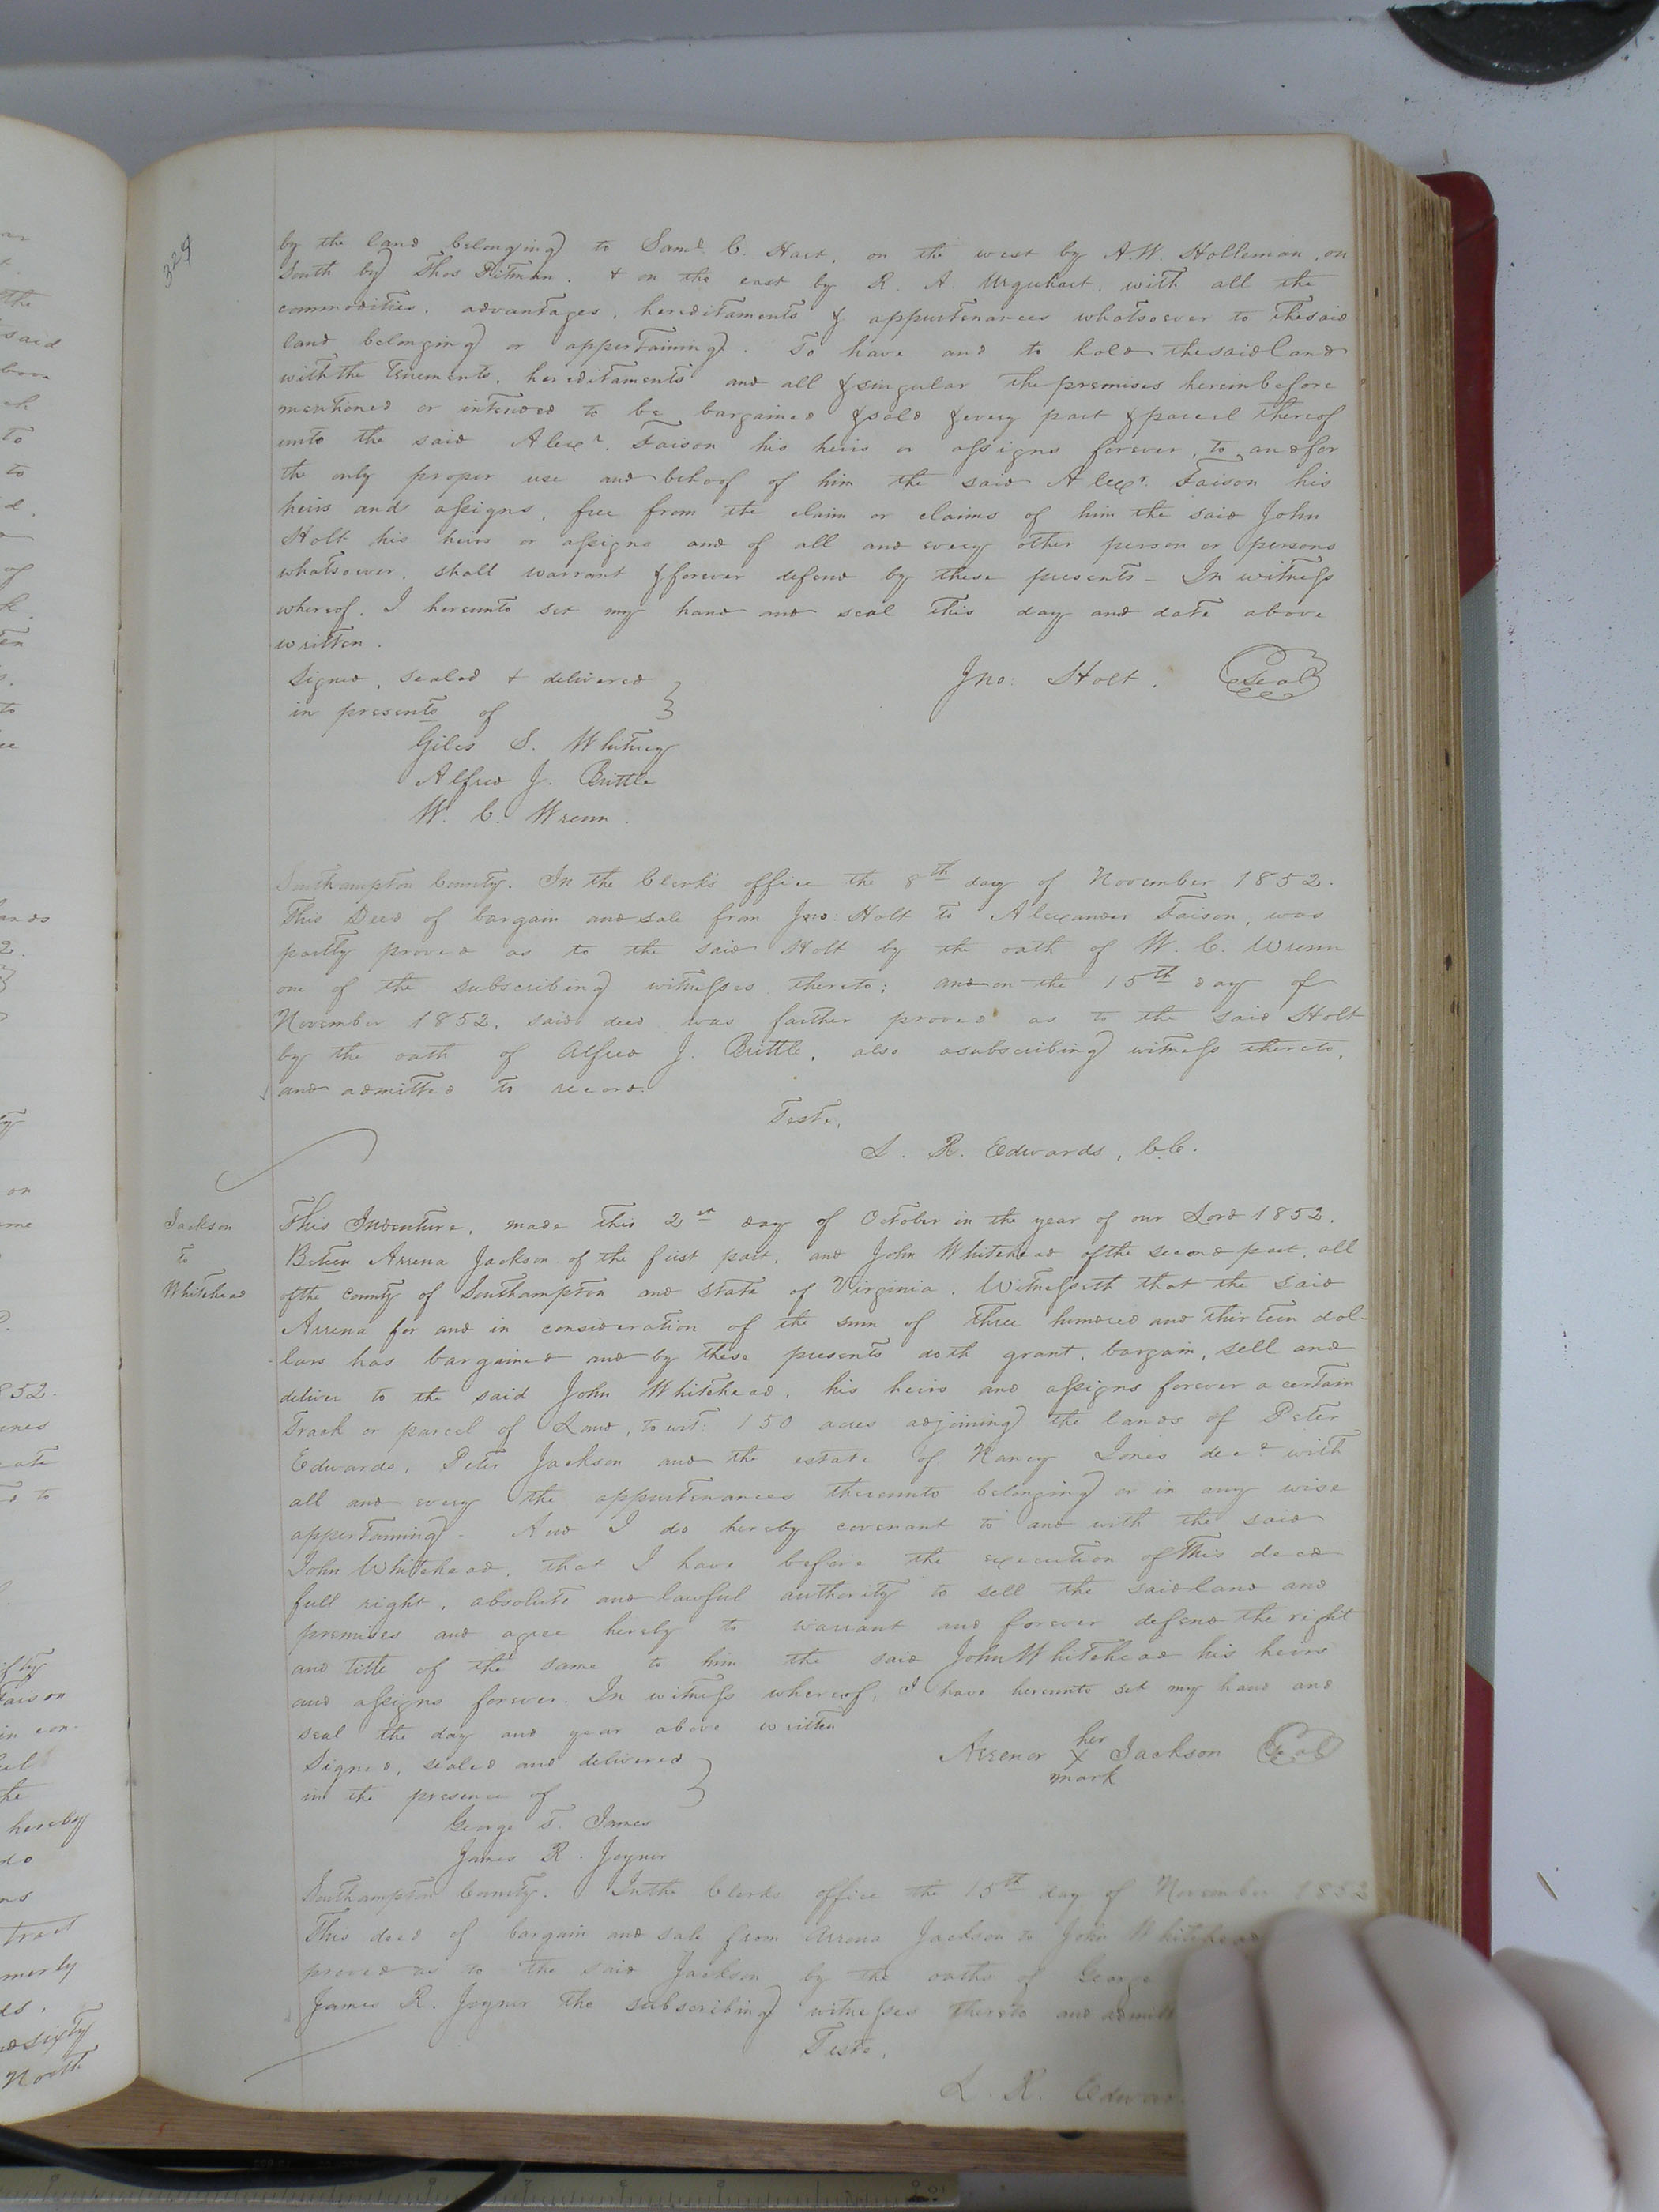 329
by the land belonging to Saml. C. Hart, on the west by A.W. Holleman, on
South by Thos Pitman. & on the east by R. A. Urquhart, with all the
commodities, advantages, hereditaments & appurtenances whatsoever to the said
land belonging or appertaining. To have and to hold the said land
with the Tenements, hereditaments and all & singular the premises hereinbefore
mentioned or intended to be bargained & sold & every part & parcel thereof
unto the said Alexr. Faison his heirs or assigns forever, to and for
the only proper use and behoof of him the said Alexr. Faison his
heirs and assigns, free from the claim or claims of him the said John
Holt his heirs or assigns and of all and every other person or persons
whatsoever, shall warrant & forever defend by these presents - In witness
whereof, I hereunto set my hand and seal this day and date above
written.
Signed, sealed & delivered
in presents of
Jno: Holt. Seal
Giles S. Whitney
Alfred J. Brittle
W. C. Wrenn.
Southampton County. In the Clerk's office the 8th day of November 1852.
This Deed of bargain and sale from Jno: Holt to Alexander Faison, was
partly proved as to the said Holt by the oath of W. C. Wrenn
one of the subscribing witnesses thereto; and on the 15th day of
November 1852, said deed was farther proved as to the said Holt
by the oath of Alfred J. Brittle, also a subscribing witness thereto,
and admitted to record.
Teste,
L. R. Edwards, C.C.
Jackson
to
Whitehead
This Indenture, made this 2nd day of October in the year of our Lord 1852.
Between Arrena Jackson of the first part, and John Whitehead of the second part, all
of the county of Southampton and State of Virginia. Witnesseth that the said
Arrena for and in consideration of the sum of Three hundred and thirteen dol-
-lars has bargained and by these presents doth grant, bargain, sell and
deliver to the said John Whitehead, his heirs and assigns forever a certain
Track or parcel of Land, to wit: 150 acres adjoining the lands of Peter
Edwards, Peter Jackson and the estate of Nancy Jones decd with
all and every the appurtenances thereunto belonging or in any wise
appertaining. And I do hereby covenant to and with the said
John Whitehead, that I have before the execution of this deed
full right, absolute and lawful authority to sell the said land and
premises and agree hereby to warrant and forever defend the right
and title of the same to him the said John Whitehead his heirs
and assigns forever. In witness whereof, I have hereunto set my hand and
seal the day and year above written
Signed, sealed and delivered
in the presence of
Arrenor her X mark Jackson Seal
George T. James
James R. Joyner
Southampton County. In the Clerks office the 15th day of November 1852
This deed of bargain and sale from Arrena Jackson to John Whitehead
proved as to the said Jackson by the oaths of George
James R. Joyner the subscribing witnesses thereto and admitt
Teste,
L. R. Edwar